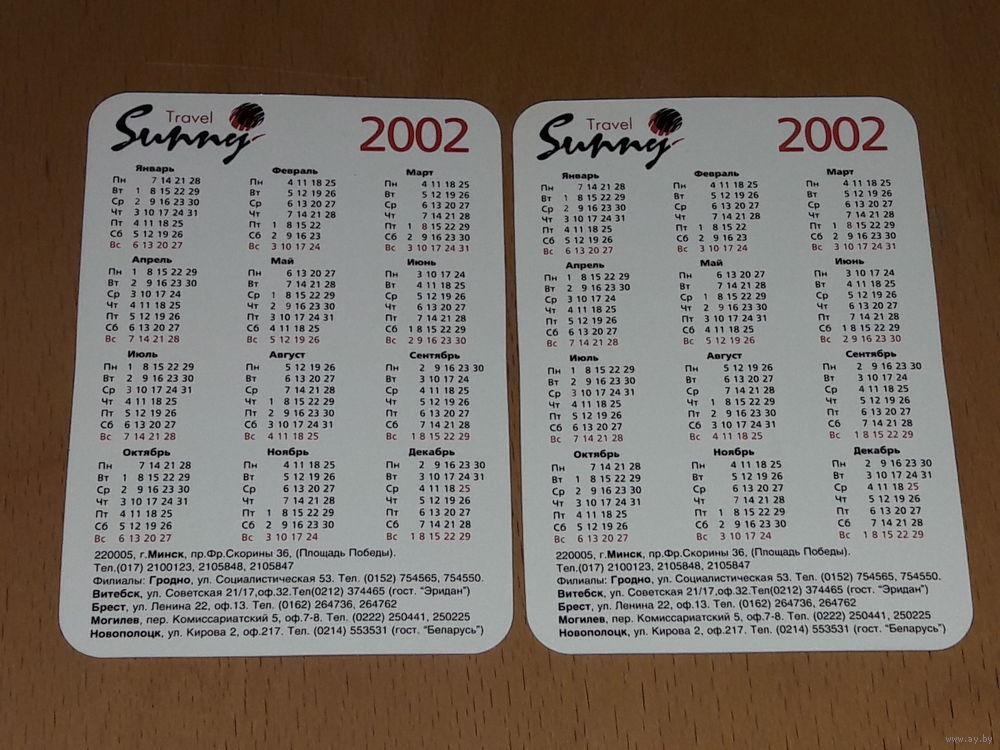 Travel
Sunny
2002
Январь
Пн 7 14 21 28
Вт 1 8 15 22 29
Ср 2 9 16 23 30
Чт 3 10 17 24 31
Пт 4 11 18 25
Сб 5 12 19 26
Вс 6 13 20 27
Февраль
Пн 4 11 18 25
Вт 5 12 19 26
Ср 6 13 20 27
Чт 7 14 21 28
Пт 1 8 15 22
Сб 2 9 16 23
Вс 3 10 17 24
Март
Пн 4 11 18 25
Вт 5 12 19 26
Ср 6 13 20 27
Чт 7 14 21 28
Пт 1 8 15 22 29
Сб 2 9 16 23 30
Вс 3 10 17 24 31
Апрель
Пн 1 8 15 22 29
Вт 2 9 16 23 30
Ср 3 10 17 24
Чт 4 11 18 25
Пт 5 12 19 26
Сб 6 13 20 27
Вс 7 14 21 28
Май
Пн 6 13 20 27
Вт 7 14 21 28
Ср 1 8 15 22 29
Чт 2 9 16 23 30
Пт 3 10 17 24 31
Сб 4 11 18 25
Вс 5 12 19 26
Июнь
Пн 3 10 17 24
Вт 4 11 18 25
Ср 5 12 19 26
Чт 6 13 20 27
Пт 7 14 21 28
Сб 1 8 15 22 29
Вс 2 9 16 23 30
Июль
Пн 1 8 15 22 29
Вт 2 9 16 23 30
Ср 3 10 17 24 31
Чт 4 11 18 25
Пт 5 12 19 26
Сб 6 13 20 27
Вс 7 14 21 28
Август
Пн 5 12 19 26
Вт 6 13 20 27
Ср 7 14 21 28
Чт 1 8 15 22 29
Пт 2 9 16 23 30
Сб 3 10 17 24 31
Вс 4 11 18 25
Сентябрь
Пн 2 9 16 23 30
Вт 3 10 17 24
Ср 4 11 18 25
Чт 5 12 19 26
Пт 6 13 20 27
Сб 7 14 21 28
Вс 1 8 15 22 29
Октябрь
Пн 7 14 21 28
Вт 1 8 15 22 29
Ср 2 9 16 23 30
Чт 3 10 17 24 31
Пт 4 11 18 25
Сб 5 12 19 26
Вс 6 13 20 27
Ноябрь
Пн 4 11 18 25
Вт 5 12 19 26
Ср 6 13 20 27
Чт 7 14 21 28
Пт 1 8 15 22 29
Сб 2 9 16 23 30
Вс 3 10 17 24
Декабрь
Пн 2 9 16 23 30
Вт 3 10 17 24 31
Ср 4 11 18 25
Чт 5 12 19 26
Пт 6 13 20 27
Сб 7 14 21 28
Вс 1 8 15 22 29
220005, г.Минск, пр.Фр.Скорины 36, (Площадь Победы).
Тел.(017) 2100123, 2105848, 2105847
Филиалы: Гродно, ул. Социалистическая 53. Тел. (0152) 754565, 754550.
Витебск, ул. Советская 21/17,оф.32.Тел(0212) 374465 (гост. "Эридан")
Брест, ул. Ленина 22, оф.13. Тел. (0162) 264736, 264762
Могилев, пер. Комиссариатский 5, оф.7-8. Тел. (0222) 250441, 250225
Новополоцк, ул. Кирова 2, оф.217. Тел. (0214) 553531 (гост. "Беларусь")
Travel
Sunny
2002
Январь
Пн 7 14 21 28
Вт 1 8 15 22 29
Ср 2 9 16 23 30
Чт 3 10 17 24 31
Пт 4 11 18 25
Сб 5 12 19 26
Вс 6 13 20 27
Февраль
Пн 4 11 18 25
Вт 5 12 19 26
Ср 6 13 20 27
Чт 7 14 21 28
Пт 1 8 15 22
Сб 2 9 16 23
Вс 3 10 17 24
Март
Пн 4 11 18 25
Вт 5 12 19 26
Ср 6 13 20 27
Чт 7 14 21 28
Пт 1 8 15 22 29
Сб 2 9 16 23 30
Вс 3 10 17 24 31
Апрель
Пн 1 8 15 22 29
Вт 2 9 16 23 30
Ср 3 10 17 24
Чт 4 11 18 25
Пт 5 12 19 26
Сб 6 13 20 27
Вс 7 14 21 28
Май
Пн 6 13 20 27
Вт 7 14 21 28
Ср 1 8 15 22 29
Чт 2 9 16 23 30
Пт 3 10 17 24 31
Сб 4 11 18 25
Вс 5 12 19 26
Июнь
Пн 3 10 17 24
Вт 4 11 18 25
Ср 5 12 19 26
Чт 6 13 20 27
Пт 7 14 21 28
Сб 1 8 15 22 29
Вс 2 9 16 23 30
Июль
Пн 1 8 15 22 29
Вт 2 9 16 23 30
Ср 3 10 17 24 31
Чт 4 11 18 25
Пт 5 12 19 26
Сб 6 13 20 27
Вс 7 14 21 28
Август
Пн 5 12 19 26
Вт 6 13 20 27
Ср 7 14 21 28
Чт 1 8 15 22 29
Пт 2 9 16 23 30
Сб 3 10 17 24 31
Вс 4 11 18 25
Сентябрь
Пн 2 9 16 23 30
Вт 3 10 17 24
Ср 4 11 18 25
Чт 5 12 19 26
Пт 6 13 20 27
Сб 7 14 21 28
Вс 1 8 15 22 29
Октябрь
Пн 7 14 21 28
Вт 1 8 15 22 29
Ср 2 9 16 23 30
Чт 3 10 17 24 31
Пт 4 11 18 25
Сб 5 12 19 26
Вс 6 13 20 27
Ноябрь
Пн 4 11 18 25
Вт 5 12 19 26
Ср 6 13 20 27
Чт 7 14 21 28
Пт 1 8 15 22 29
Сб 2 9 16 23 30
Вс 3 10 17 24
Декабрь
Пн 2 9 16 23 30
Вт 3 10 17 24 31
Ср 4 11 18 25
Чт 5 12 19 26
Пт 6 13 20 27
Сб 7 14 21 28
Вс 1 8 15 22 29
220005, г.Минск, пр.Фр.Скорины 36, (Площадь Победы).
Тел.(017) 2100123, 2105848, 2105847
Филиалы: Гродно, ул. Социалистическая 53. Тел. (0152) 754565, 754550.
Витебск, ул. Советская 21/17,оф.32.Тел(0212) 374465 (гост. "Эридан")
Брест, ул. Ленина 22, оф.13. Тел. (0162) 264736, 264762
Могилев, пер. Комиссариатский 5, оф.7-8. Тел. (0222) 250441, 250225
Новополоцк, ул. Кирова 2, оф.217. Тел. (0214) 553531 (гост. "Беларусь")
www.ay.by